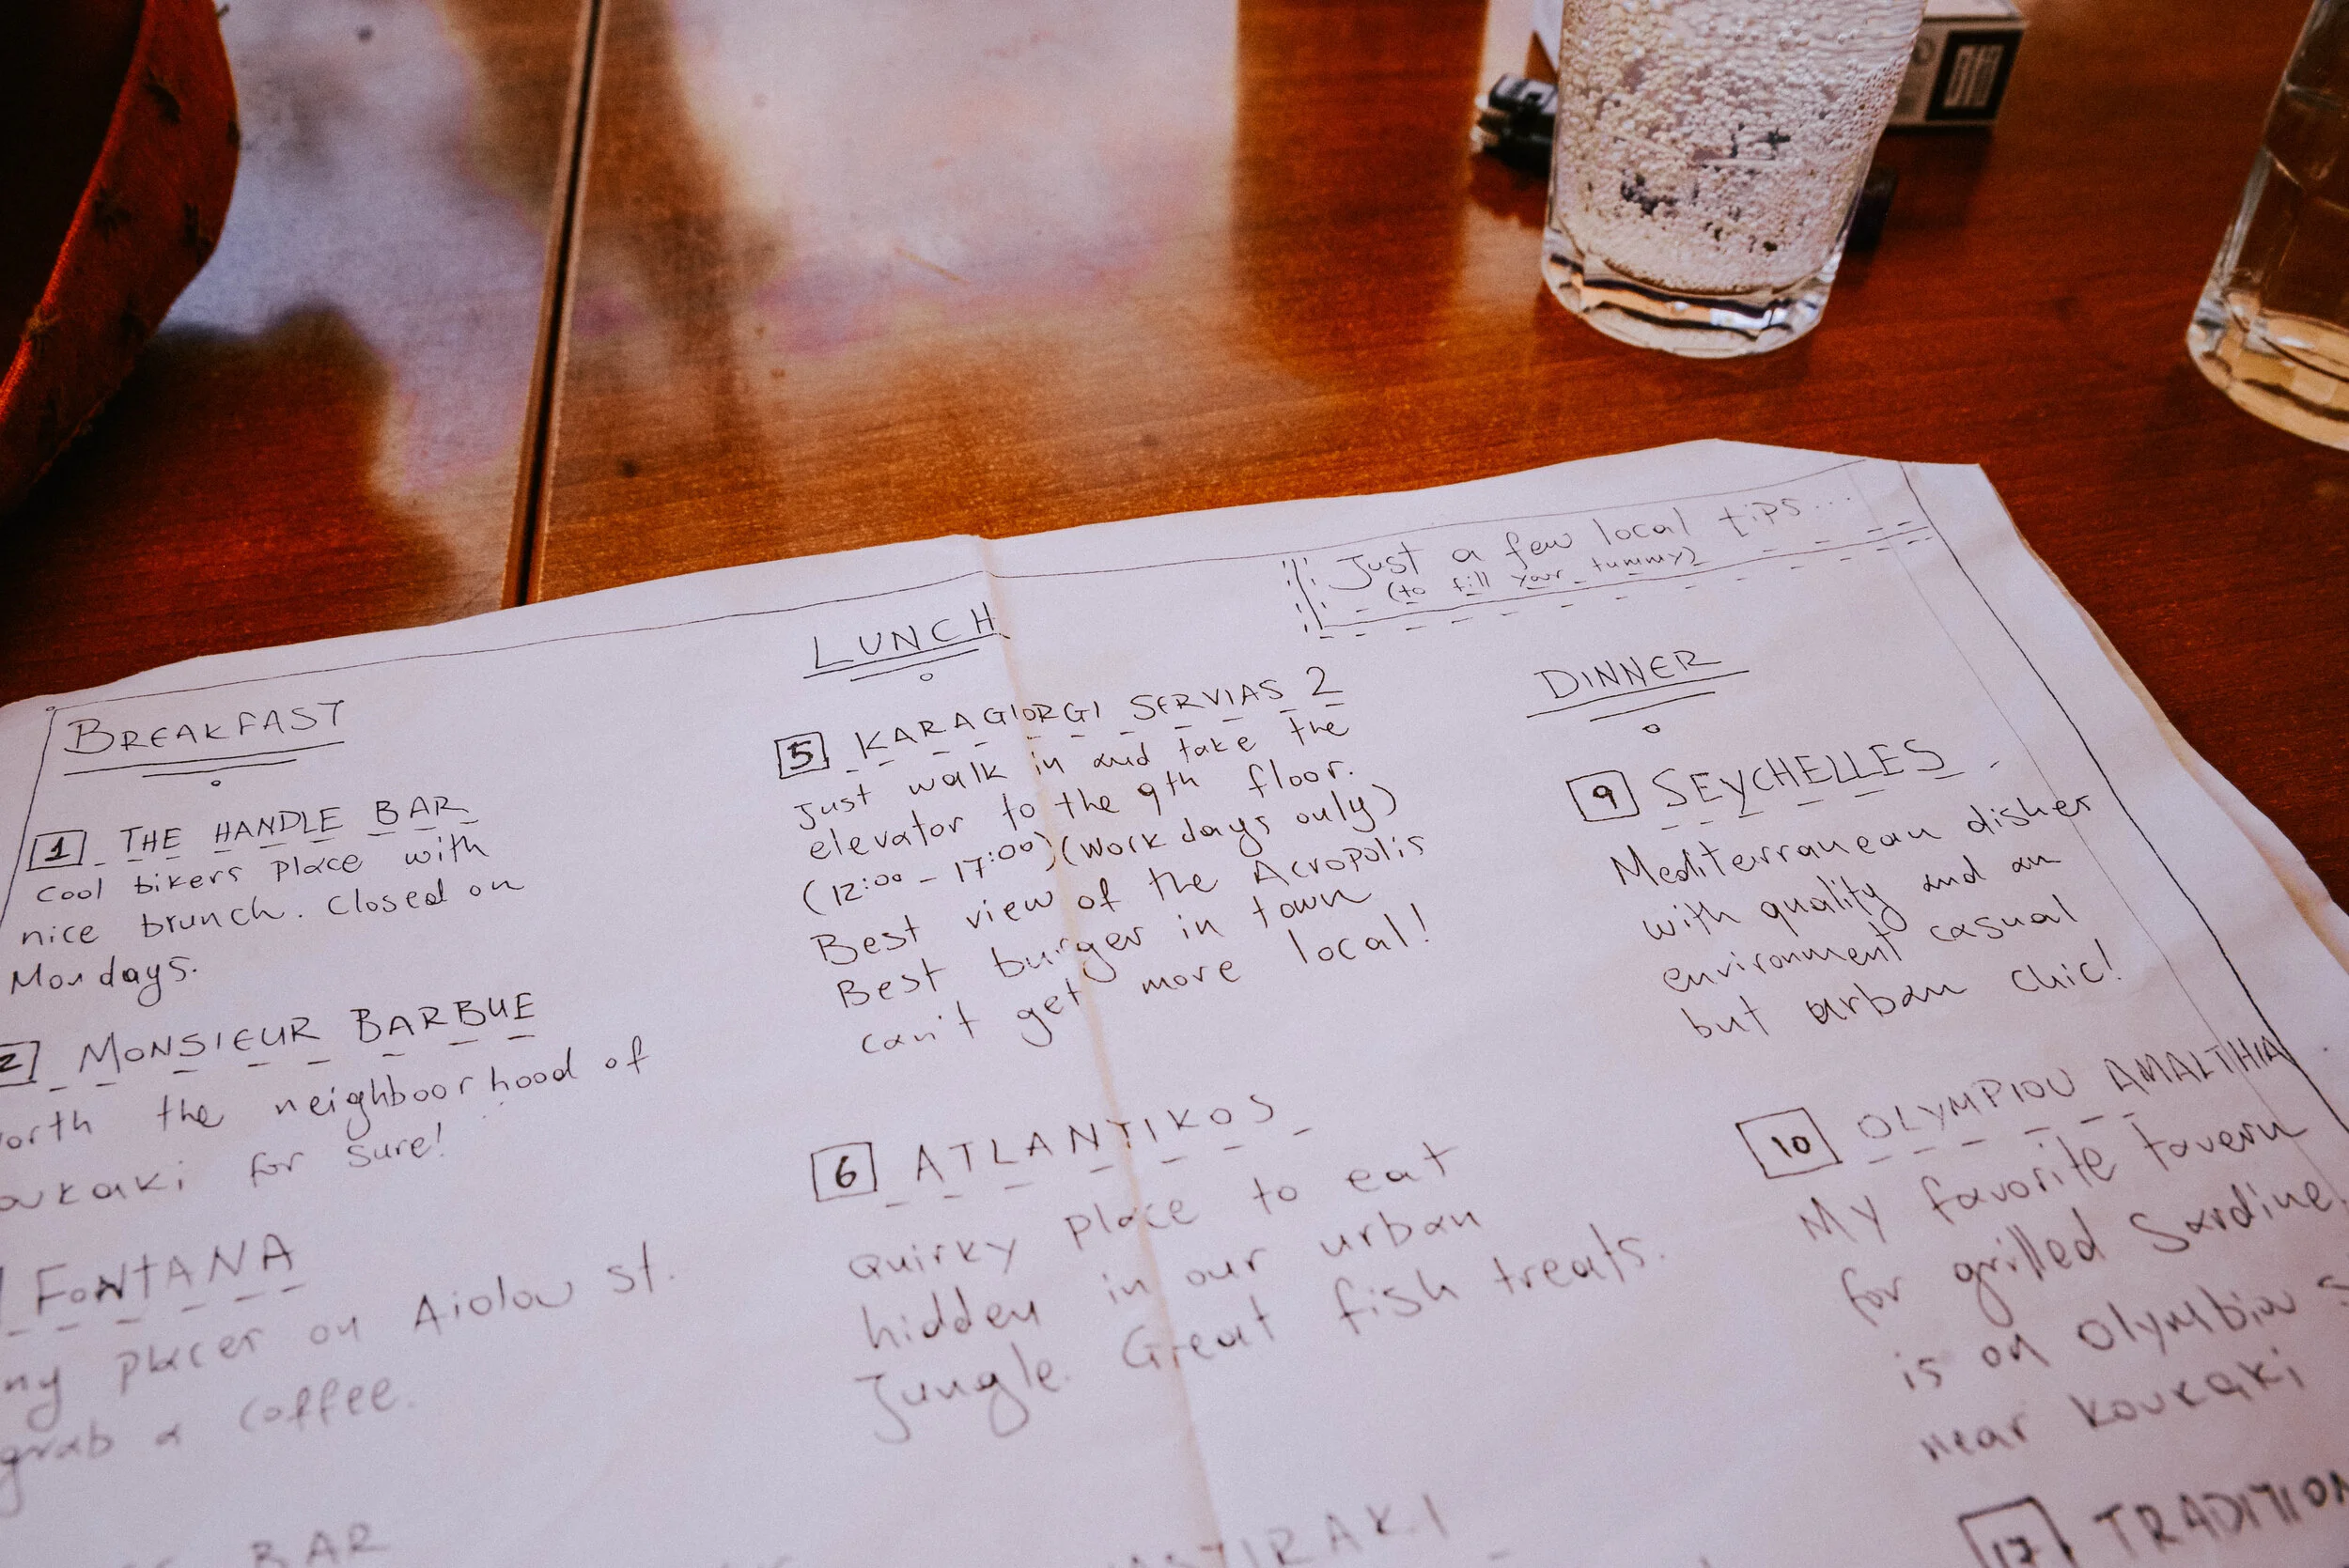 Just a few local tips...
(to fill your tummy)
BREAKFAST
1 THE HANDLE BAR
cool bikers place with
nice brunch. Closed on
Mondays.
2 MONSIEUR BARBUE
the neighboorhood of
for sure!
FONTANA
places on Aiolou st.
grab a coffee.
BAR
LUNCH
5 KARAGIORGI SERVIAS 2
Just walk in and take the
elevator to the 9th floor.
(12:00 - 17:00) (work days only)
Best view of the Acropolis
Best burger in town
can't get more local!
6 ATLANTIKOS
Quirky place to eat
hidden in our urban
Jungle. Great fish treats.
DINNER
9 SEYCHELLES
Mediterranean dishes
with quality and an
environment casual
but urban chic!
10 OLYMPIOU AMALTHIA
My favorite tavern
for grilled Sardine
is on Olymbiou
near Koukaki